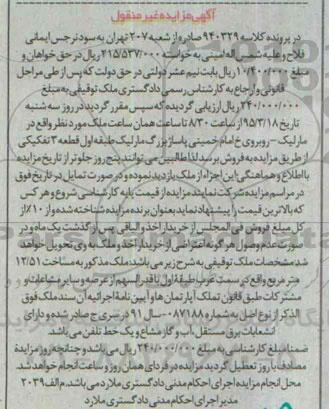 آگهی مزایده غیر منقول
در پرونده کلاسه ۹۴۰۳۲۹ صادره از شعبه ۲۰۷ تهران به سود نرجس ایمانی
فلاح و علیه شمس اله اسنی به خواسته ۲۱۵/۵۳۷/۰۰۰ ریال در حق خواهان و
مبلغ ۱۰/۴۰۰/۰۰۰ ریال بابت نیم عشر دولتی در حق دولت که پس از طی مراحل
قانونی و ارجاع به کارشناس رسمی دادگستری ملک توقیفی به مبلغ
۲۴۰/۰۰۰/۰۰۰ ریال ارزیابی گردیده که سپس مقرر گردید در روز سه شنبه
تاریخ ۹۵/۳/۱۸ از ساعت ۸/۳۰ تا ساعت همان ساعت ملک مورد نظر واقع در
مارلیک - روبروی خ امام خمینی پاساژ بزرگ مارلیک طبقه اول قطعه ۳ تفکیکی
از طریق مزایده به فروش برسد لذا طالبین می توانند پنج روز جلوتر از تاریخ مزایده
با اطلاع و هماهنگی این اجراء از ملک بازدید نموده و در صورت تمایل در تاریخ فوق
در مراسم مزایده شرکت نمایند مزایده از قیمت پایه کارشناسی شروع و هر کس
که بالاترین قیمت را پیشنهاد نماید بعنوان برنده مزایده شناخته شده و از ۱۰٪ از
کل مبلغ فروش فی المجلس از خریدار اخذ و الباقی پس از گذشت یک ماه و در
صورت عدم وصول هر گونه اعتراضی از خریدار اخذ و ملک به وی تحویل خواهد
شد مشخصات ملک توقیفی به شرح زیر می باشد: ملک مذکور به مساحت ۱۲/۵۱
متر مربع واقع در سمت غرب طبقه اول با قدر السهم از عرصه و سایر مشاعات و
مشترکات طبق قانون تملک آپارتمان ها و آیین نامه اجرائیه آن سند ملک فوق
الذکر از نوع اصل به شماره ۰۸۷۱۸۸ - سال ۹۱ در سری ج صادر شده و دارای
انشعابات برق مستقل، آب و گاز مشاع و یک خط تلفن می باشد.
ضمنا مبلغ کارشناسی به مبلغ ۲۴۰/۰۰۰/۰۰۰ ریال می باشد و چنانچه روز مزایده
مصادف با روز تعطیل گردید مزایده در فردای همان روز و ساعت انجام خواهد شد.
محل انجام مزایده اجرای احکام مدنی دادگستری ملارد می باشد. م الف ۲۰۳۹
مدیر اجرای احکام مدنی دادگستری ملارد